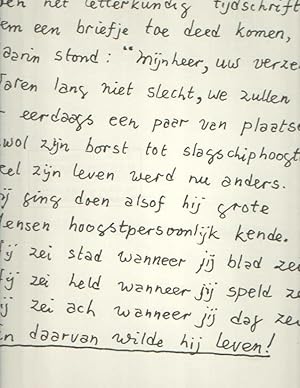 het letterkundig tijdschrift
em een briefje toe deed komen,
aarin stond: "Mijnheer, uw verze
aren lang niet slecht, we zullen
eerdaags een paar van plaatse
wol zijn borst tot slagschiphoogt
eel zijn leven werd nu anders.
ij ging doen alsof hij grote
ensen hoogstpersoonlijk kende.
ij zei stad wanneer jij blad ze
ij zei held wanneer jij speld ze
ij zei ach wanneer jij dag ze
n daarvan wilde hij leven!